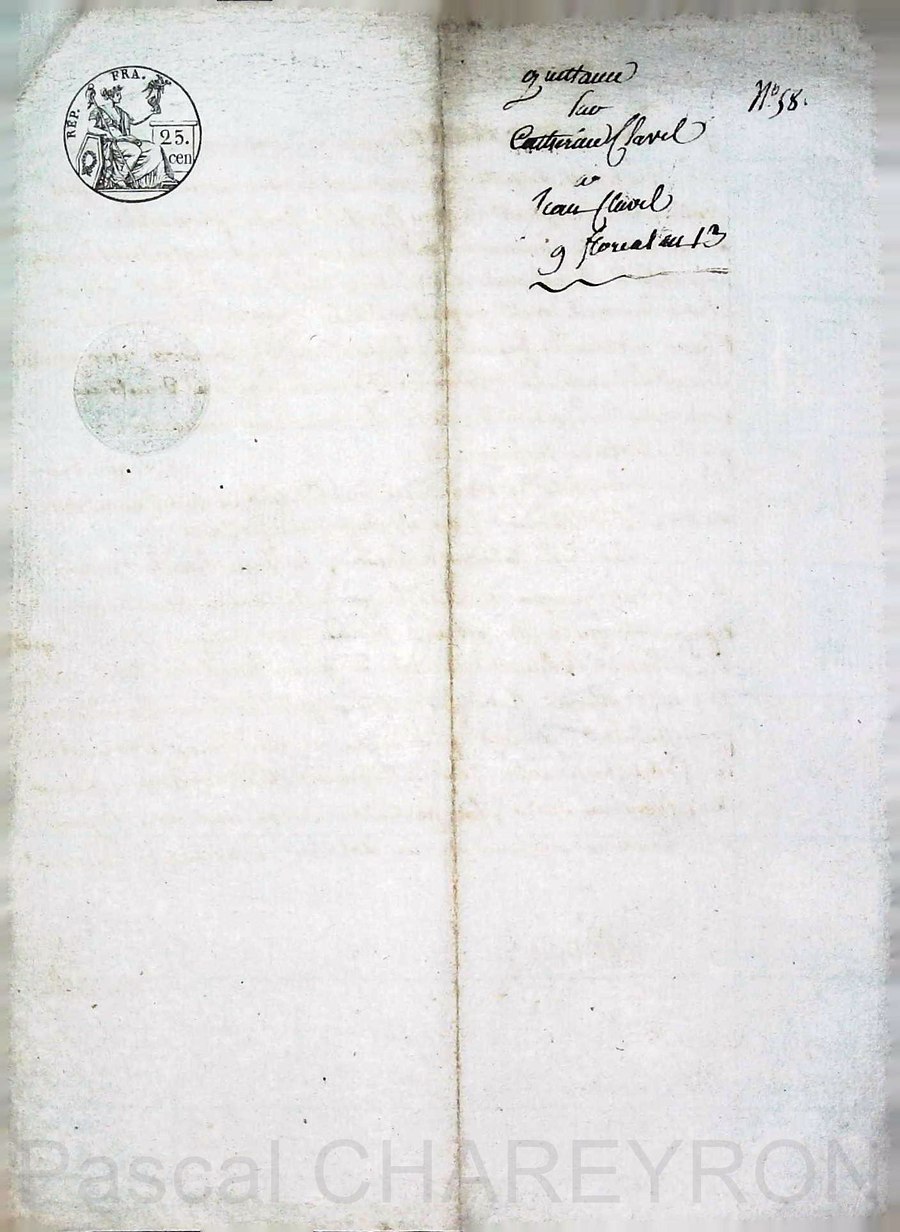 RÉP. FRA.
25.
cen
quittance
par
Catherine Clavel
a
Jean Clavel
9 floreal an 13
N° 58.
Pascal CHAREYRON